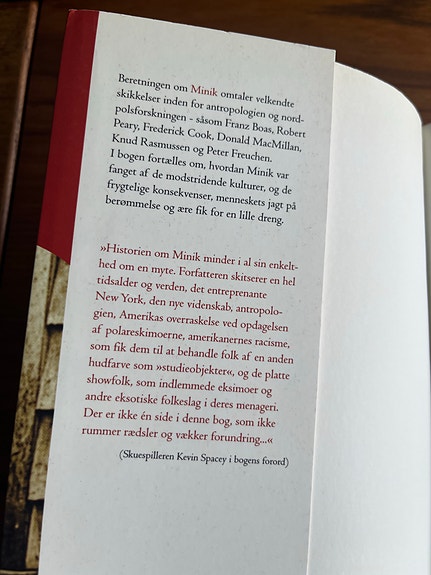 Beretningen om Minik omtaler velkendte
skikkelser inden for antropologien og nord-
polsforskningen - såsom Franz Boas, Robert
Peary, Frederick Cook, Donald MacMillan,
Knud Rasmussen og Peter Freuchen.
I bogen fortælles om, hvordan Minik var
fanget af de modstridende kulturer, og de
frygtelige konsekvenser, menneskets jagt på
berømmelse og ære fik for en lille dreng.
»Historien om Minik minder i al sin enkelt-
hed om en myte. Forfatteren skitserer en hel
tidsalder og verden, det entreprenante
New York, den nye videnskab, antropolo-
gien, Amerikas overraskelse ved opdagelsen
af polareskimoerne, amerikanernes racisme,
som fik dem til at behandle folk af en anden
hudfarve som »studieobjekter«, og de platte
showfolk, som indlemmede eksimoer og
andre eksotiske folkeslag i deres menageri.
Der er ikke én side i denne bog, som ikke
rummer rædsler og vækker forundring...«
(Skuespilleren Kevin Spacey i bogens forord)